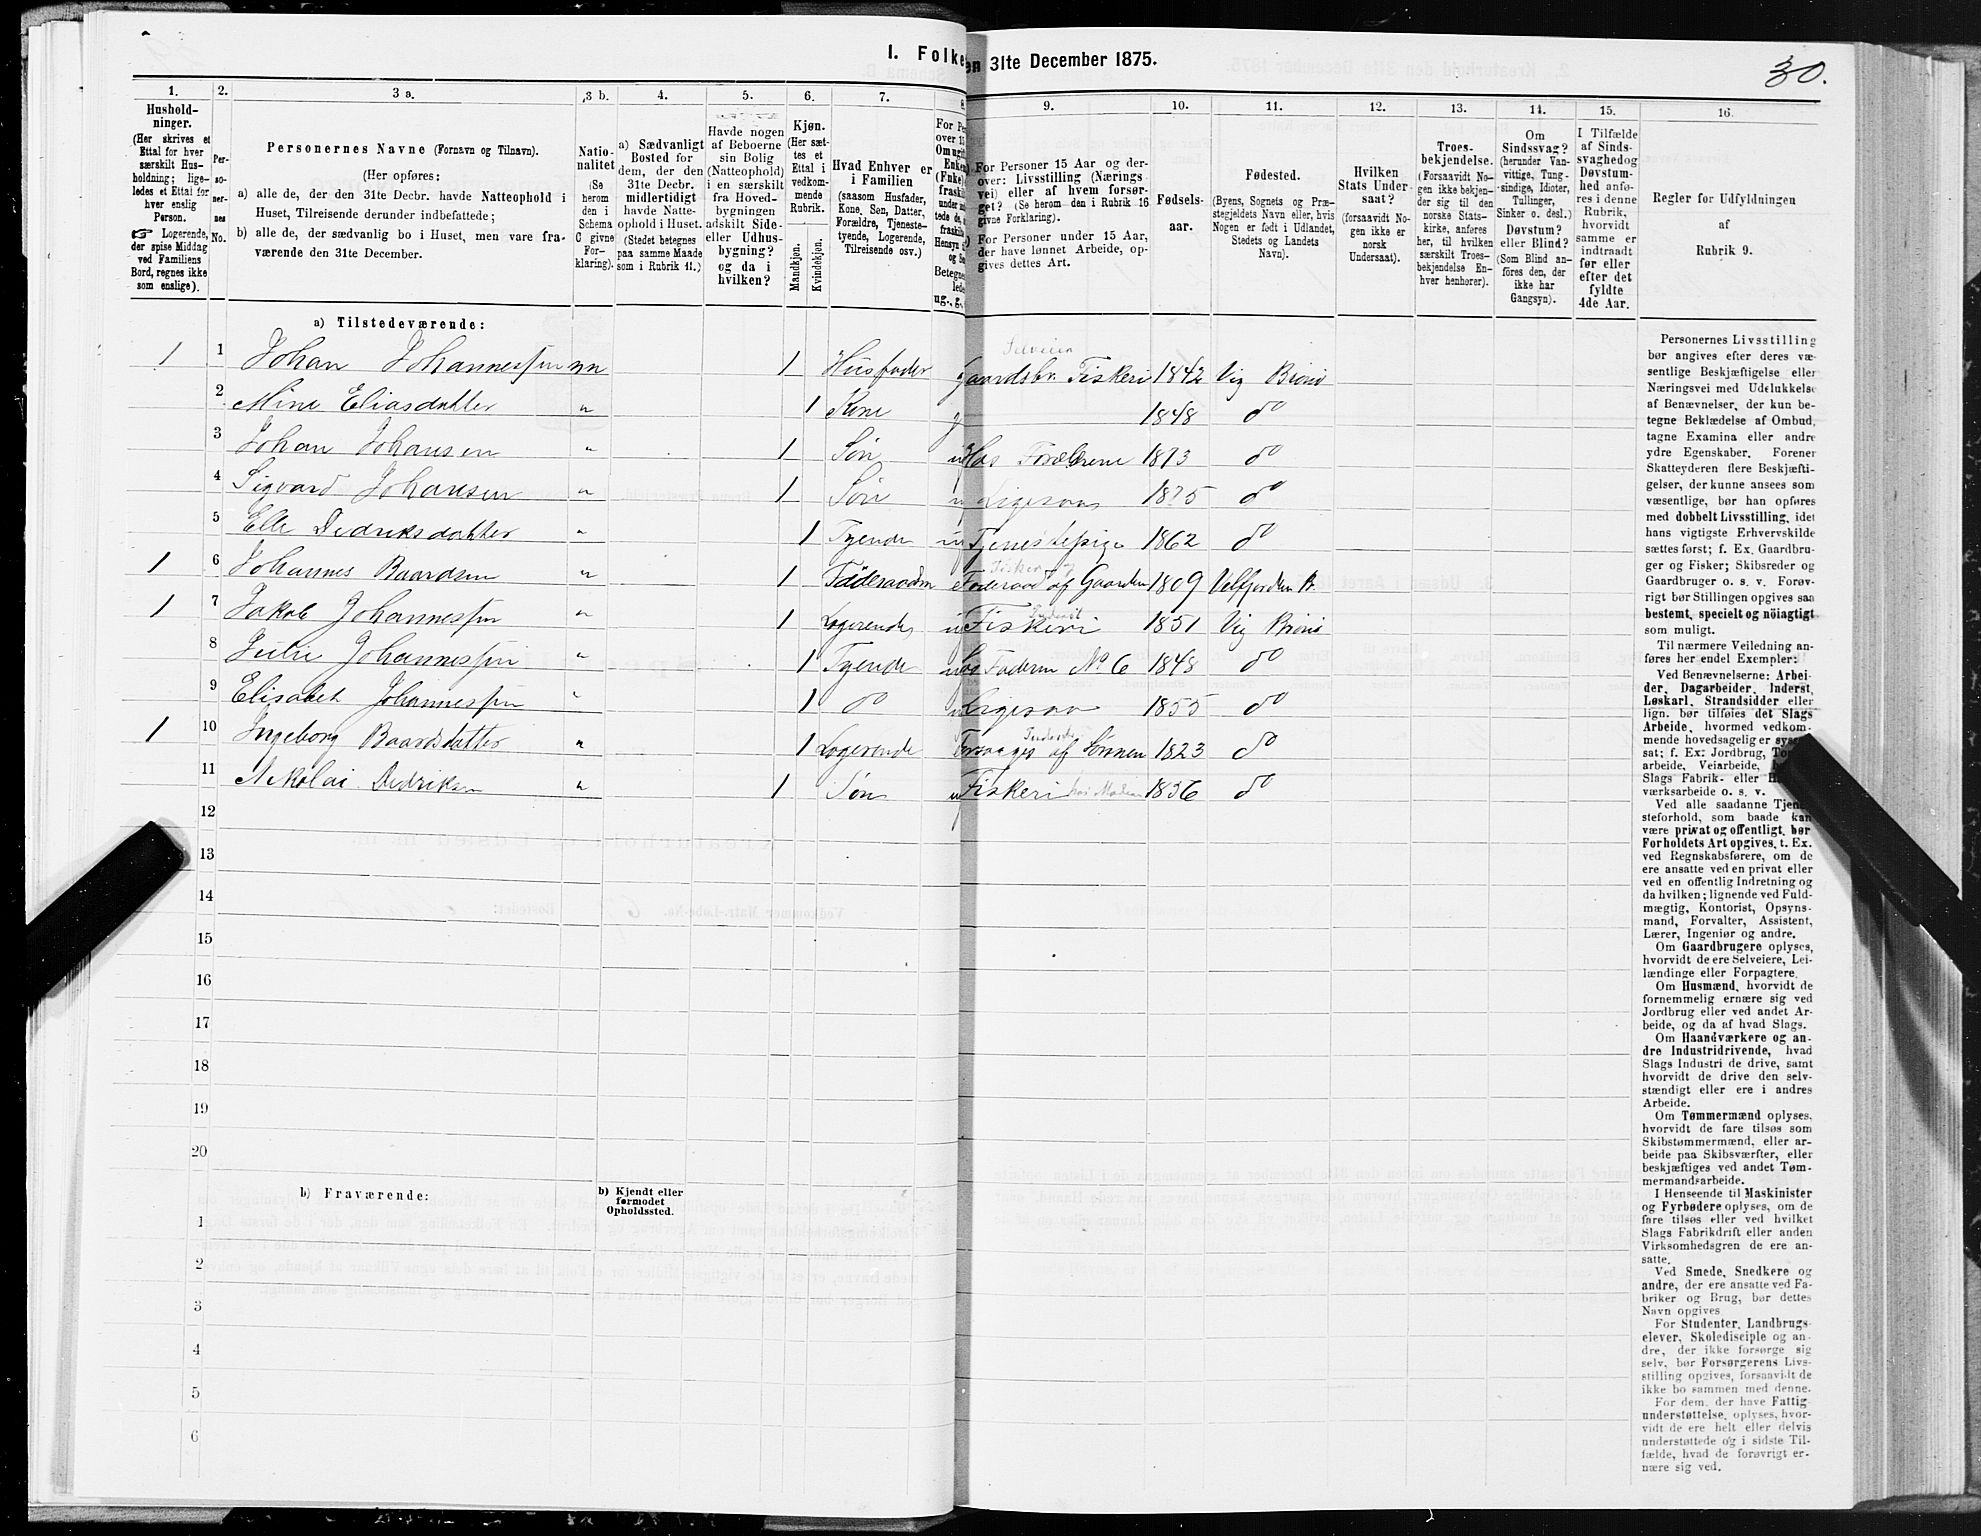 I. Folke
en 31te December 1875.
30.
1.
2.
3 a.
3 b.
4.
5.
6.
7.
8
9.
10.
11.
12.
13.
14.
15.
16.
Hushold-
ninger.
(Her skrives et
Ettal for hver
særskilt Hus-
holdning; lige-
ledes et Ettal for
hver enslig
Person.
☞ Logerende,
der spise Middag
ved Familiens
Bord, regnes ikke
som enslige).
Per-
so-
ner-
nes
No.
Personernes Navne (Fornavn og Tilnavn).
(Her opføres:
a) alle de, der den 31te Decbr. havde Natteophold i
Huset, Tilreisende derunder indbefattede;
b) alle de, der sædvanlig bo i Huset, men vare fra-
værende den 31te December.
Natio-
nalitet
(Se
herom
den i
Schema
C givne
For-
klaring).
a) Sædvanligt
Bosted for
dem, der den
31te Decbr.
midlertidigt
havde Natte-
ophold i Huset.
(Stedet betegnes
paa samme Maade
som i Rubrik 11.)
Havde nogen
af Beboerne
sin Bolig
(Natteophold)
i en særskilt
fra Hoved-
bygningen
adskilt Side-
eller Udhus-
bygning?
og da i
hvilken?
Kjøn.
(Her sæt-
tes et
Ettal i
vedkom-
mende
Rubrik.
Mandkjøn.
Kvindekjøn.
Hvad Enhver er
i Familien
(saasom Husfader,
Kone, Søn, Datter,
Forældre, Tjeneste-
tyende, Logerende,
Tilreisende osv.)
For Personer 15 Aar og der-
over: Livsstilling (Nærings
vei) eller af hvem forsør-
get? (Se herom den i Rubrik 16
givne Forklaring).
For Personer under 15 Aar,
der have lønnet Arbeide, op-
gives dettes Art.
Fødsels-
aar.
Fødested.
(Byens, Sognets og Præ-
stegjeldets Navn eller, hvis
Nogen er født i Udlandet,
Stedets og Landets
Navn).
Hvilken
Stats Under-
saat?
(forsaavidt No-
gen ikke er
norsk
Undersaat).
Troes-
bekjendelse.
(Forsaavidt No-
gen ikke bekjen-
der sig til den
norske Stats-
kirke, anføres
her, til hvilken
særskilt Troes-
bekjendelse En-
hver henhører).
Om
Sindssvag?
(herunder Van-
vittige, Tung-
sindige, Idioter,
Tullinger,
Sinker o. desl.)
Døvstum?
eller Blind?
(Som Blind an-
føres den, der
ikke har
Gangsyn).
I Tilfælde
af Sinds-
svaghedog
Døvstum-
hed anfø-
res i denne
Rubrik,
hvorvidt
samme er
indtraadt
før eller
efter det
fyldte
4de Aar.
Regler for Udfyldningen
af
Rubrik 9.
a) Tilstedeværende:
1 1 Johan Johannessen nn 1 Husfader g Gaardsbr. Fiskeri 1842 Vig Brønø
2 Mine Eliasdatter " 1 Kone g 1848 do
3 Johan Johansen " 1 Søn u Hos Forældrene 1873 do
4 Sigvard Johansen " 1 Søn u Ligesaa 1875 do
5 Elle Dedriksdatter " 1 Tyende u Tjenestepige 1862 do
1 6 Johannes Baardsen " 1 Føderaadm e Føderaad af Gaarden 1809 Velfjorden B.
1 7 Jakob Johannessen " 1 Logerende u Fiskeri 1851 Vig Brønø
8 Johannessen " 1 Tyende u Hos Faderen No 6 1848 do
9 Elisabet Johannessen " 1 do u Ligesaa 1855 do
1 10 Ingeborg Baardsdatter " 1 Logerende Forsørges af Sønnen 1823 do
11 Nikolai Dedriksen " 1 Søn u Fiskeri hos Moderen 1856 do
12
13
14
15
16
17
18
19
20
b) Fraværende:
b) Kjendt eller
formodet
Opholdssted.
1
2
3
4
5
6
Personernes Livsstilling
bør angives efter deres væ-
sentlige Beskjæftigelse eller
Næringsvei med Udelukkelse
af Benævnelser, der kun be-
tegne Beklædelse af Ombud,
tagne Examina eller andre
ydre Egenskaber. Forener
Skatteyderen flere Beskjæfti-
gelser, der kunne ansees som
væsentlige, bør han opføres
med dobbelt Livsstilling, idet
hans vigtigste Erhvervskilde
sættes først; f. Ex. Gaardbru-
ger og Fisker; Skibsreder og
Gaardbruger o. s. v. Forøv-
rigt bør Stillingen opgives saa
bestemt, specielt og nöiagtigt
som muligt.
Til nærmere Veiledning an-
føres her endel Exempler:
Ved Benævnelserne: Arbei-
der, Dagarbeider, Inderst,
Løskarl, Strandsidder eller
lign. bør tilføies det Slags
Arbeide, hvormed vedkom-
mende hovedsagelig er syssel-
sat; f. Ex: Jordbrug, Tom-
arbeide, Veiarbeide,
Slags Fabrik- eller
værksarbeide o. s. v.
Ved alle saadanne Tjene-
steforhold, som baade kan
være privat og offentligt, bør
Forholdets Art opgives, t. Ex.
ved Regnskabsførere, om de
ere ansatte ved en privat eller
ved en offentlig Indretning og
da hvilken; lignende ved Fuld-
mægtig, Kontorist, Opsyns-
mand, Forvalter, Assistent,
Lærer, Ingeniør og andre.
Om Gaardbrugere oplyses,
hvorvidt de ere Selveiere, Lei-
lændinge eller Forpagtere.
Om Husmænd, hvorvidt de
fornemmelig ernære sig ved
Jordbrug eller ved andet Ar-
beide, og da af hvad Slags.
Om Haandværkere og an-
dre Industridrivende, hvad
Slags Industri de drive, samt
hvorvidt de drive den selv-
stændigt eller ere i andres
Arbeide.
Om Tømmermænd oplyses,
hvorvidt de fare tilsøs som
Skibstømmermænd, eller ar-
beide paa Skibsværfter, eller
beskjæftiges ved andet Tøm-
mermandsarbeide.
I Henseende til Maskinister
og Fyrbødere oplyses, om de
fare tilsøs eller ved hvilket
Slags Fabrikdrift eller anden
Virksomhedsgren de ere an-
satte.
Ved Smede, Snedkere og
andre, der ere ansatte ved Fa-
briker og Brug, bør dettes
Navn opgives
For Studenter, Landbrugs-
elever, Skoledisciple og an-
dre, der ikke forsørge sig
selv, bør Forsørgerens Livs-
stilling opgives, forsaavidt de
ikke bo sammen med denne.
For dem, der have Fattig-
understøttelse, oplyses, hvor-
vidt de ere helt eller delvis
understøttede og i sidste Til-
fælde, hvad de forøvrigt er-
nære sig ved.